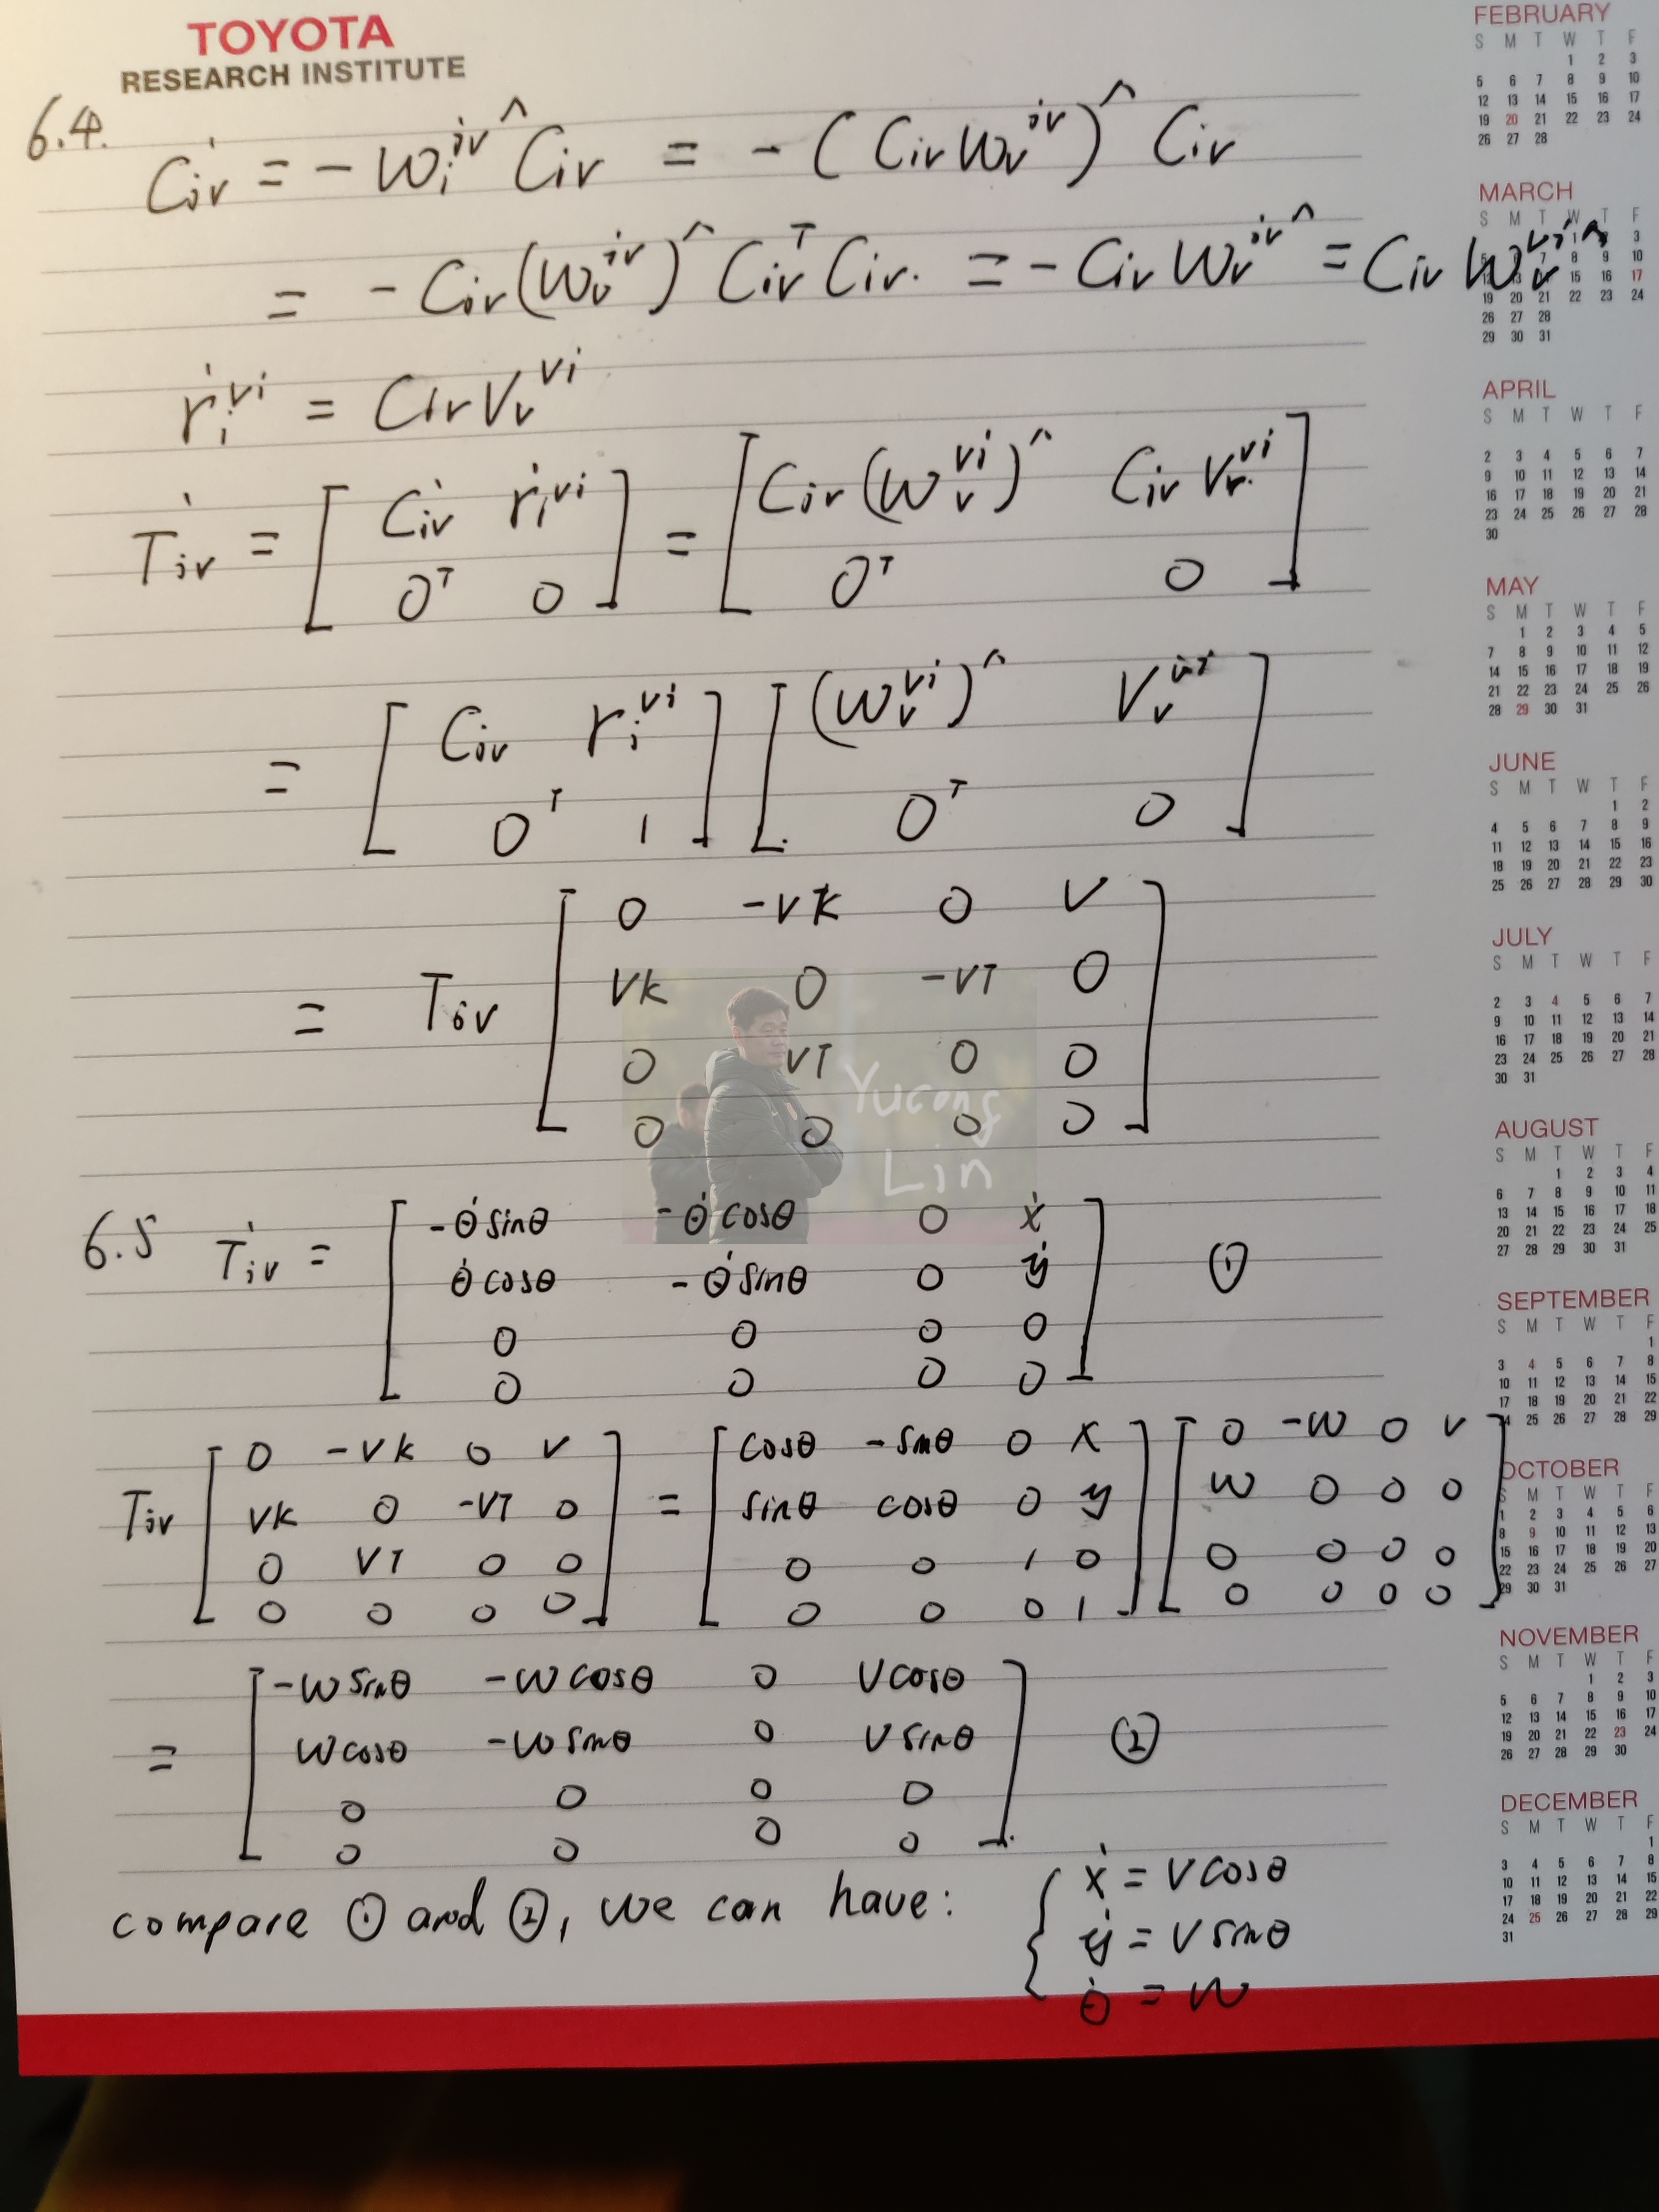 TOYOTA
RESEARCH INSTITUTE
6.4.
Ċiv = - ωi^iv^ Civ = - (Civ ωv^iv)^ Civ
= - Civ (ωv^iv)^ Civ^T Civ. = - Civ ωv^iv^ = Civ ωv^vi^
ṙi^vi = Civ Vv^vi
Ṫiv = [ Ċiv ṙi^vi ] = [ Civ (ωv^vi)^ Civ Vv^vi ]
[ 0^T 0 ] [ 0^T 0 ]
= [ Civ ri^vi ] [ (ωv^vi)^ Vv^vi ]
[ 0^T 1 ] [ 0^T 0 ]
= Tiv [ 0 -VK 0 V ]
[ VK 0 -VT 0 ]
[ 0 VT 0 0 ]
[ 0 0 0 0 ]
Yucong
Lin
6.5 Ṫiv = [ -θ̇ sinθ -θ̇ cosθ 0 ẋ ] ①
[ θ̇ cosθ -θ̇ sinθ 0 ẏ ]
[ 0 0 0 0 ]
[ 0 0 0 0 ]
Tiv [ 0 -VK 0 V ] = [ cosθ -sinθ 0 x ] [ 0 -ω 0 V ]
[ VK 0 -VT 0 ] [ sinθ cosθ 0 y ] [ ω 0 0 0 ]
[ 0 VT 0 0 ] [ 0 0 1 0 ] [ 0 0 0 0 ]
[ 0 0 0 0 ] [ 0 0 0 1 ] [ 0 0 0 0 ]
= [ -ω sinθ -ω cosθ 0 V cosθ ] ②
[ ω cosθ -ω sinθ 0 V sinθ ]
[ 0 0 0 0 ]
[ 0 0 0 0 ]
compare ① and ②, we can have: { ẋ = V cosθ
ẏ = V sinθ
θ̇ = ω
FEBRUARY
S M T W T F
1 2 3
5 6 7 8 9 10
12 13 14 15 16 17
19 20 21 22 23 24
26 27 28
MARCH
S M T W T F
3
8 9 10
15 16 17
19 20 21 22 23 24
26 27 28
29 30 31
APRIL
S M T W T F
2 3 4 5 6 7
9 10 11 12 13 14
16 17 18 19 20 21
23 24 25 26 27 28
30
MAY
S M T W T F
1 2 3 4 5
7 8 9 10 11 12
14 15 16 17 18 19
21 22 23 24 25 26
28 29 30 31
JUNE
S M T W T F
1 2
4 5 6 7 8 9
11 12 13 14 15 16
18 19 20 21 22 23
25 26 27 28 29 30
JULY
S M T W T F
2 3 4 5 6 7
9 10 11 12 13 14
16 17 18 19 20 21
23 24 25 26 27 28
30 31
AUGUST
S M T W T F
1 2 3 4
6 7 8 9 10 11
13 14 15 16 17 18
20 21 22 23 24 25
27 28 29 30 31
SEPTEMBER
S M T W T F
1
3 4 5 6 7 8
10 11 12 13 14 15
17 18 19 20 21 22
24 25 26 27 28 29
OCTOBER
S M T W T F
1 2 3 4 5 6
8 9 10 11 12 13
15 16 17 18 19 20
22 23 24 25 26 27
29 30 31
NOVEMBER
S M T W T F
1 2 3
5 6 7 8 9 10
12 13 14 15 16 17
19 20 21 22 23 24
26 27 28 29 30
DECEMBER
S M T W T F
1
3 4 5 6 7 8
10 11 12 13 14 15
17 18 19 20 21 22
24 25 26 27 28 29
31